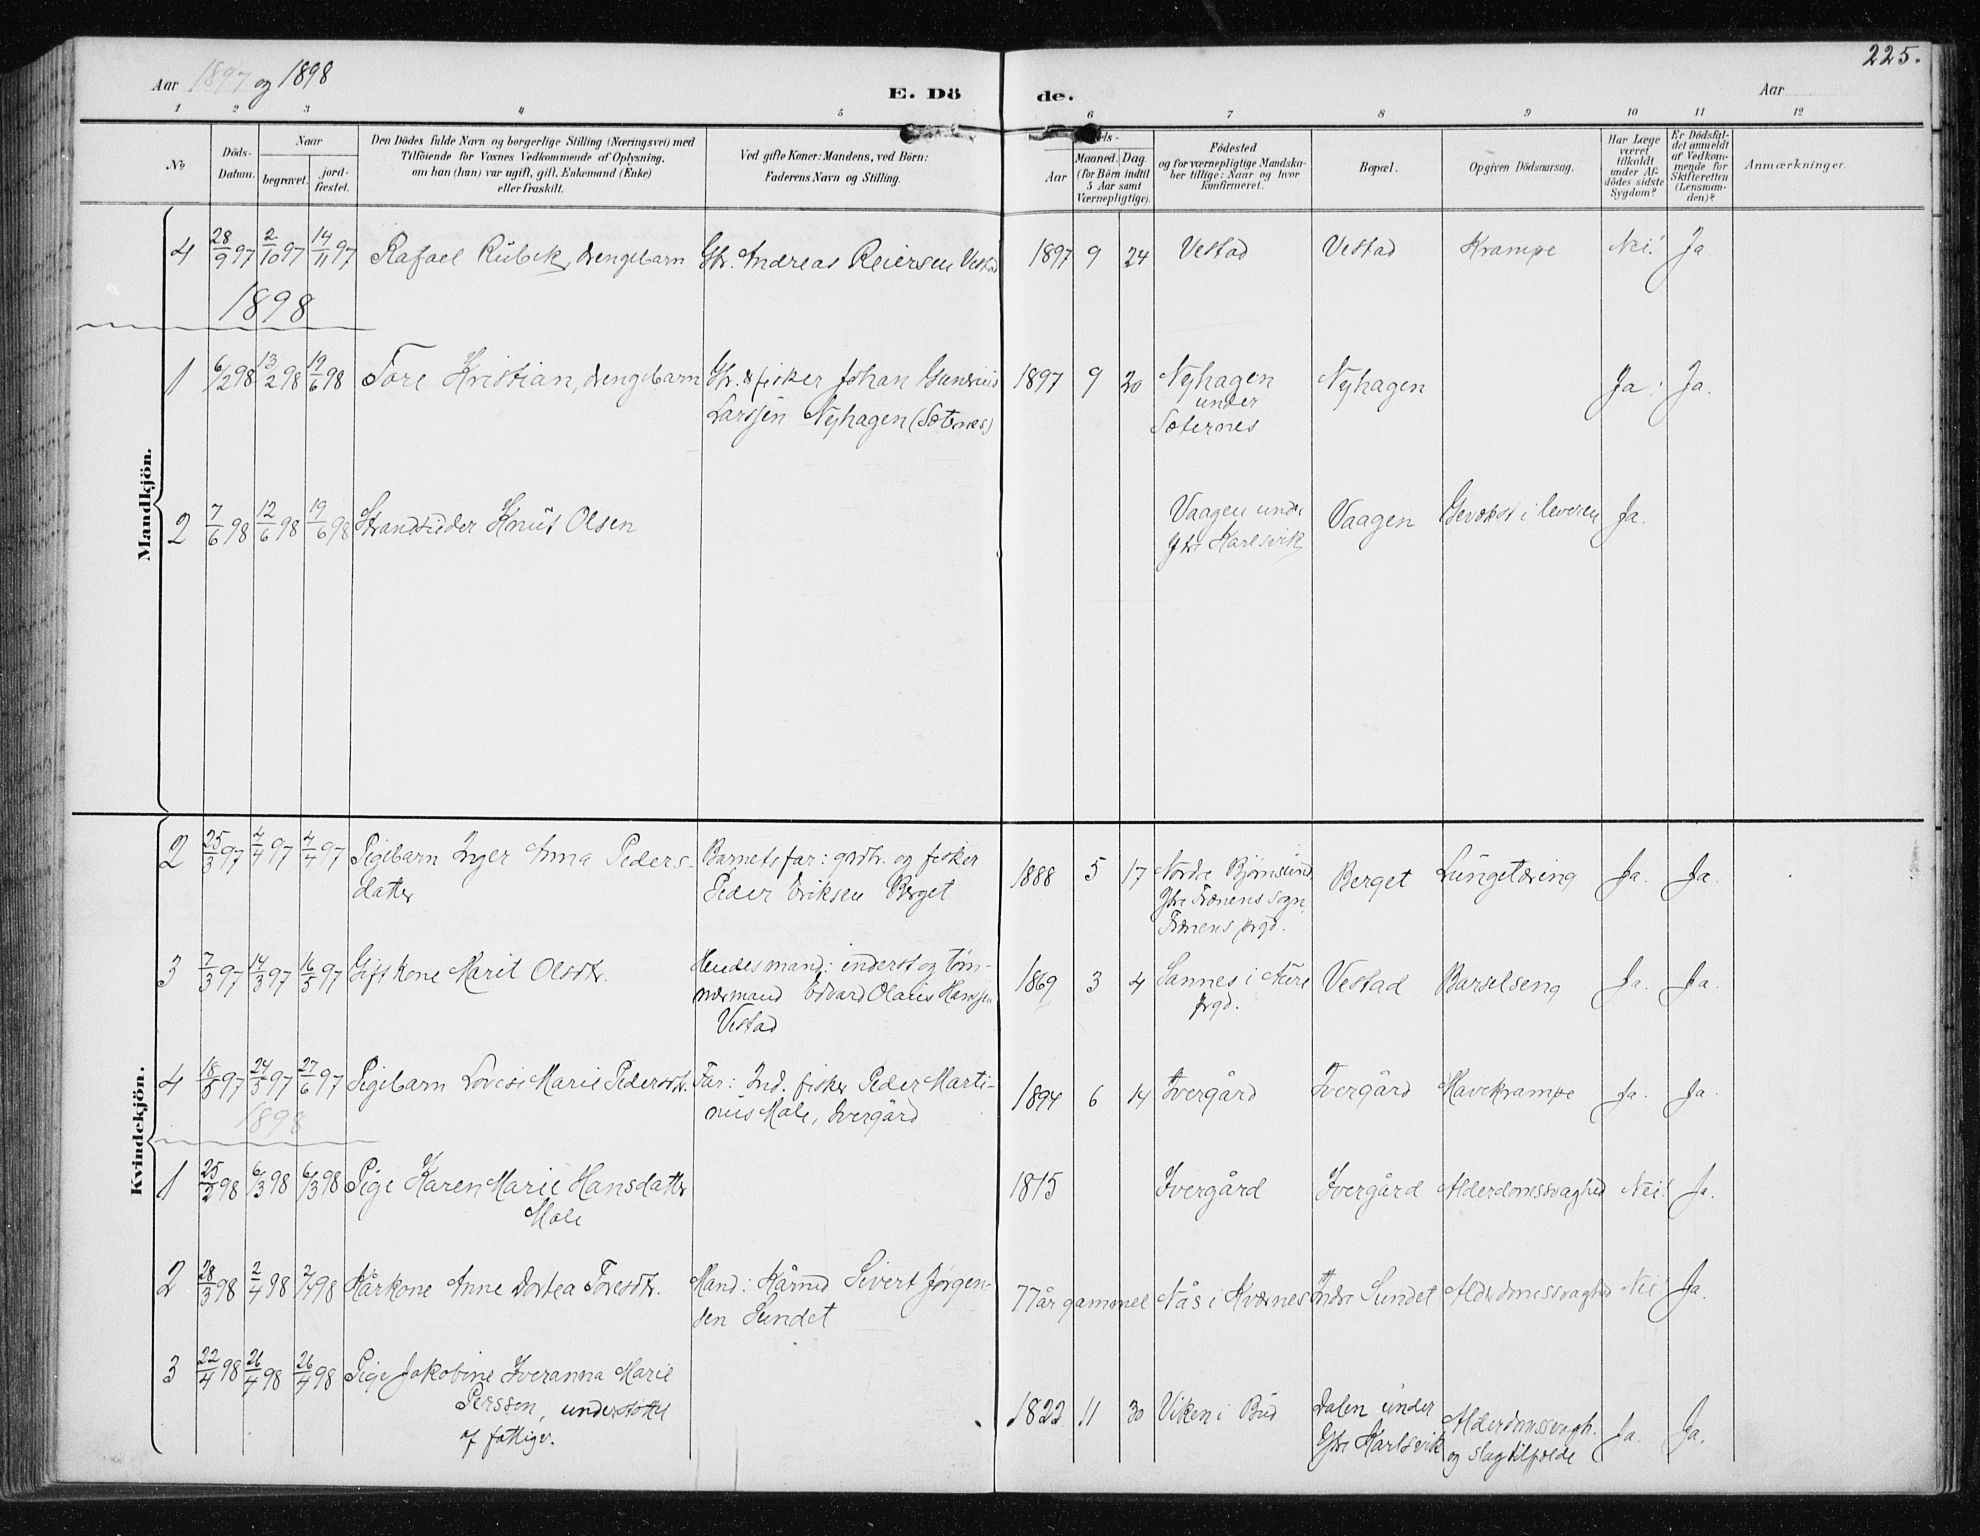 225.
Aar 1897 og 1898
E. Dö de.
Aar
1 2 3 4 5 6 7 8 9 10 11 12
No
Döds-
Datum.
Naar
begravet.
jord-
fæstet.
Den Dödes fulde Navn og borgerlige Stilling (Næringsvei) med
Tilföiende for Voxnes Vedkommende af Oplysning,
om han (hun) var ugift, gift, Enkemand (Enke)
eller fraskilt.
Ved gifte Koner: Mandens, ved Börn:
Faderens Navn og Stilling.
Aar
Maaned. Dag.
(for Börn indtil
5 Aar samt
Værnepligtige).
Födested
og for værnepligtige Mandska-
ber tillige: Naar og hvor
konfirmeret.
Bopæl.
Opgiven Dödsaarsag.
Har Læge
været
tilkaldt
under Af-
dödes sidste
Sygdom?
Er Dödsfal-
det anmeldt
af Vedkom-
mende for
Skifteretten
(Lensman-
den)?
Anmærkninger.
Mandkjön.
4 28/9 97 2/10 97 14/11 97 Rafael Rübek, drengebarn Gbr. Andreas Reiersen Vestad 1897 9 24 Vestad Vestad Krampe Nei! Ja
1898
1 6/2 98 13/2 98 19/6 98 Tore Kristian, drengebarn Gbr. & fisker Johan 1897 9 20 Nyhagen Nyhagen Ja. Ja.
Larssen Nyhagen (Sæternes) under
Sæternes
2 7/6 98 12/6 98 19/6 98 Strandsider Knut Olsen Vaagen under Vaagen i leveren Ja.
Ytre Karlsvik
Kvindekjön.
2 25/3 97 4/4 97 4/4 97 Pigebarn Inger Anna Peders- Barnets far: grdbr. og fisker 1888 5 17 Nordre Bjørnsund Berget Lungetæring Ja. Ja.
datter Peder Eriksen Berget Ytre Frænens sogn,
Frænens prgd.
3 7/3 97 14/3 97 16/5 97 Gift kone Marit Olsdtr. Hendes mand: inderst og tøm- 1869 3 4 Sannes i Aure Vestad Barselseng Ja. Ja.
mermand Edvard Olaus Hanssen prgd.
Vestad
4 18/5 97 24/5 97 27/6 97 Pigebarn Lovise Marie Pedersdtr. Far: Ind. fisker Peder Marti- 1894 6 14 Ivergård Ivergård Mavekrampe Ja. Ja.
nus Male, Ivergård
1898
1 25/2 98 6/3 98 6/3 98 Pige Karen Marie Hansdatter 1815 Ivergård Ivergård Alderdomssvaghed Nei! Ja.
Male
2 28/3 98 2/4 98 2/4 98 Kårkone Anne Dortea Toresdtr. Mand: Kårmd Sivert Jørgen- 77 år gammel Nås i Kværnes Indre Sundet Alderdomssvaghed Nei! Ja.
sen Sundet
3 22/4 98 26/4 98 26/4 98 Pige Jakobine Iveranna Marie 1822 11 30 Viken i Bud Dalen under Alderdomssvagh. Ja. Ja.
Persson, understøttet Ytre Karlsvik og slagtilfælde
af fattigv.